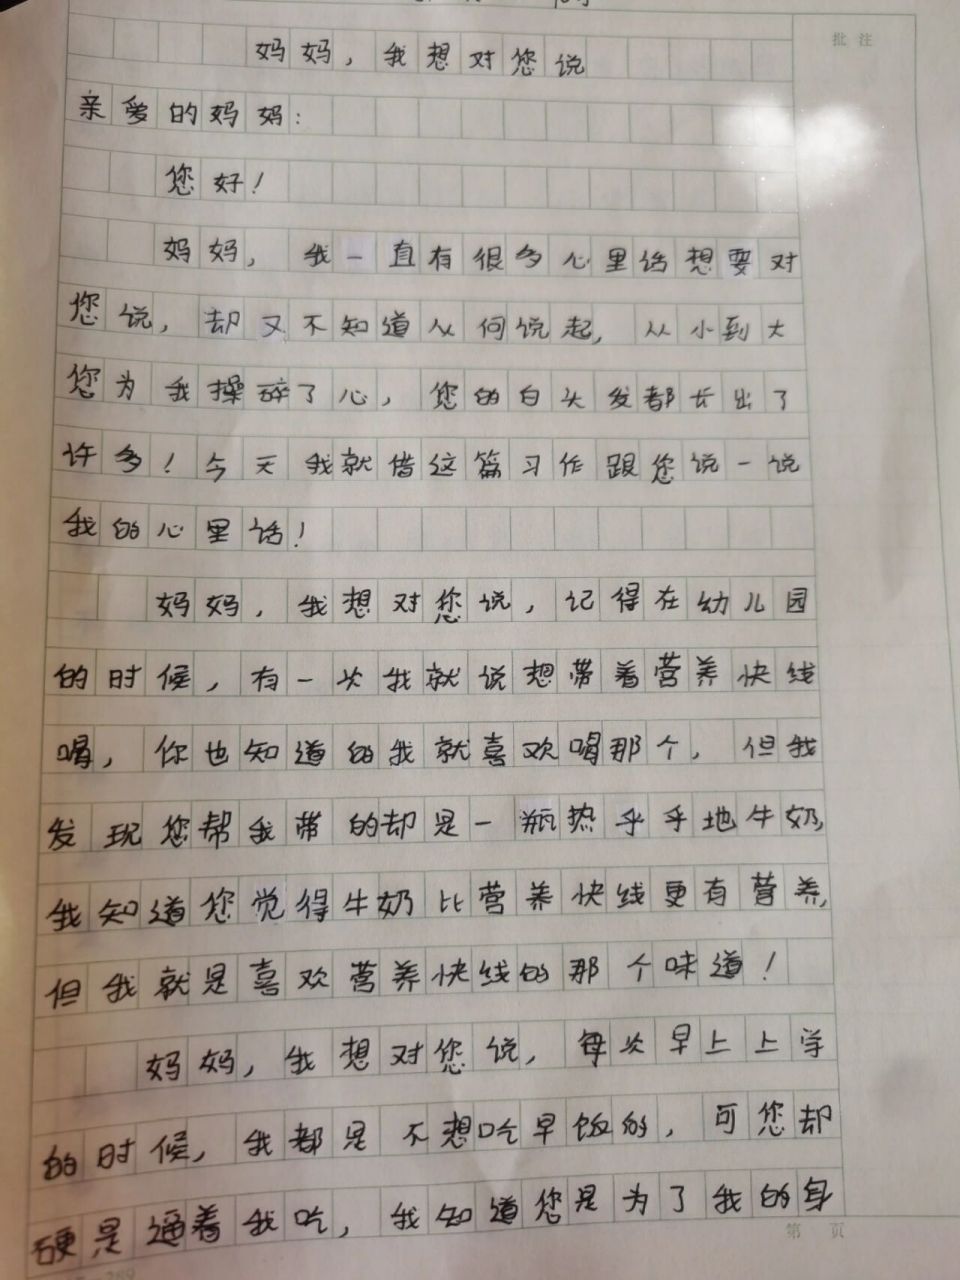 妈妈，我想对您说
批注
亲爱的妈妈：
您好！
妈妈，我一直有很多心里话想要对
您说，却又不知道从何说起，从小到大
您为我操碎了心，您的白头发都长出了
许多！今天我就借这篇习作跟您说一说
我的心里话！
妈妈，我想对您说，记得在幼儿园
的时候，有一次我就说想带着营养快线
喝，你也知道的我就喜欢喝那个，但我
发现您帮我带的却是一瓶热乎乎地牛奶，
我知道您觉得牛奶比营养快线更有营养，
但我就是喜欢营养快线的那个味道！
妈妈，我想对您说，每次早上上学
的时候，我都是不想吃早饭的，可您却
硬是逼着我吃，我知道您是为了我的身
第 页